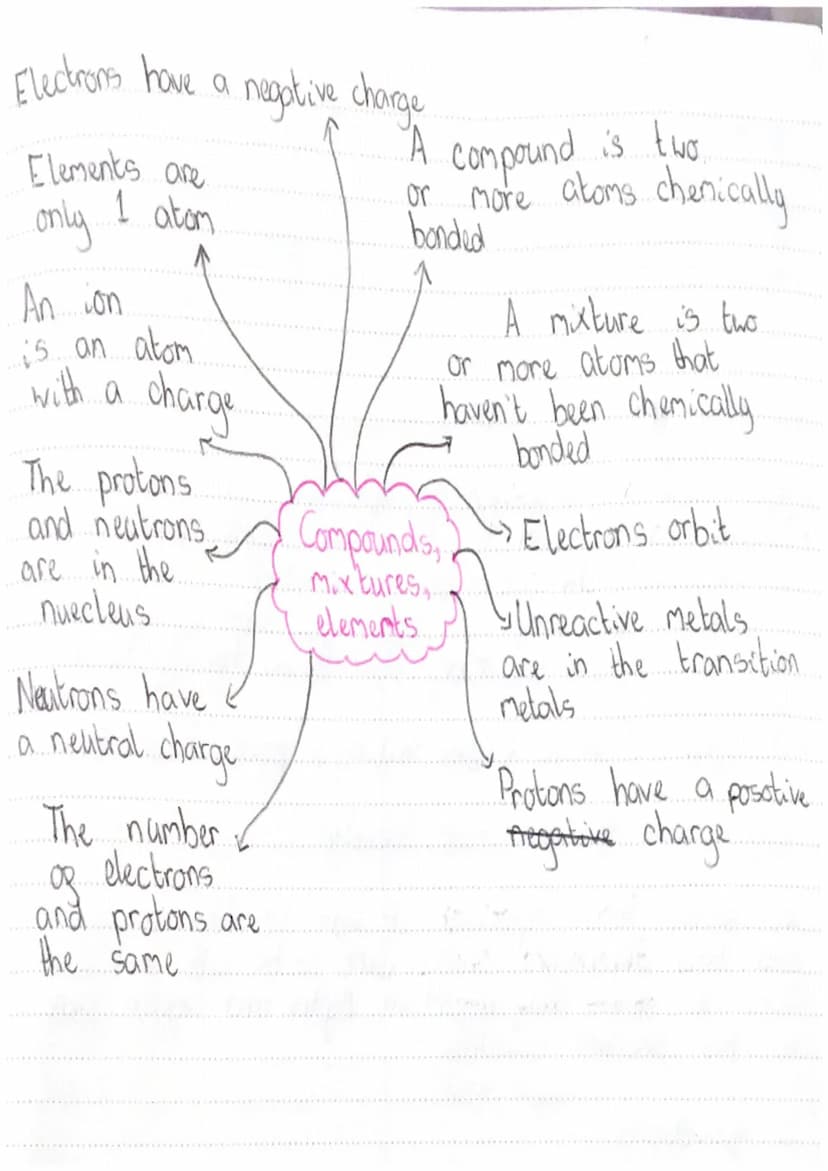 Electrons have a negative charge
Elements are
only 1 atom
A compound is two
or more atoms chemically
bonded
An ion
is an atom
with a charge
A mixture is two
or more atoms that
haven't been chemically
bonded
The protons
and neutrons
are in the
nuecleus
Compounds,
mixtures,
elements
Electrons orbit
Unreactive metals
are in the transition
metals
Neutrons have
a neutral charge
Protons have a posotive
negative charge
The number
of electrons
and protons are
the same